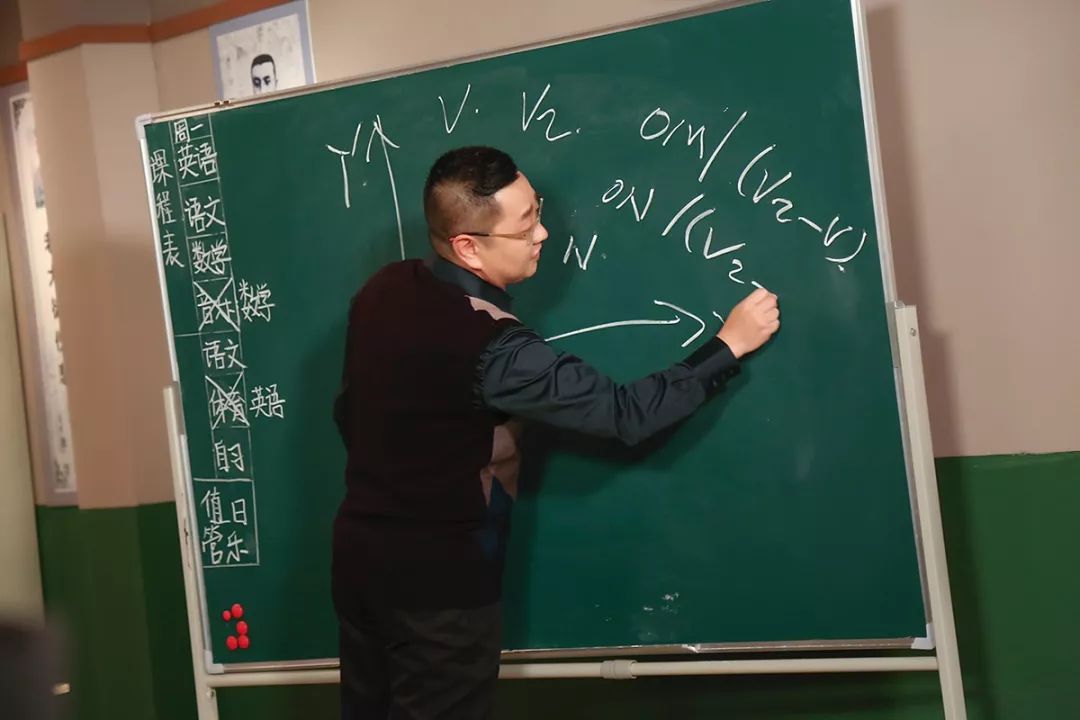 课程表
周一
英语
语文
数学
音乐 数学
语文
体育 英语
自习
值日
管乐
Y
V. V2.
OM/(V2-V)
ON/(V2
N.